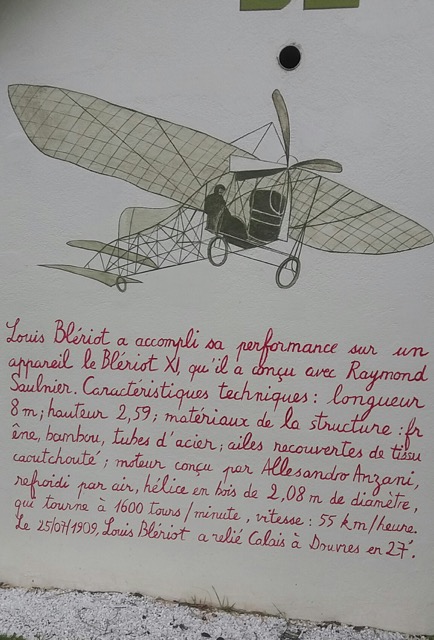 Louis Blériot a accompli sa performance sur un
appareil le Blériot XI, qu'il a conçu avec Raymond
Saulnier. Caractéristiques techniques : longueur
8 m ; hauteur 2,59 ; matériaux de la structure : fr
êne, bambou, tubes d'acier ; ailes recouvertes de tissu
caoutchouté ; moteur conçu par Allesandro Anzani,
refroidi par air, hélice en bois de 2,08 m de diamètre,
qui tourne à 1600 tours/minute, vitesse : 55 km/heure.
Le 25/07/1909, Louis Blériot a relié Calais à Douvres en 27'.